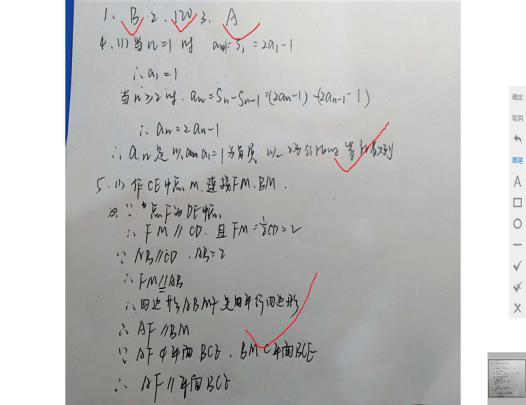 1、B 2、120 3、A
4、(1) 当n=1时 a₁=S₁=2a₁-1
∴a₁=1
当n≥2时 aₙ=Sₙ-Sₙ₋₁=(2aₙ-1)-(2aₙ₋₁-1)
∴aₙ=2aₙ-1
∴aₙ是以a₁=1为首项 以2为公比的等比数列
5、(1) 作CE中点M,连接FM、BM.
∵点F为DE中点
∴FM∥CD 且FM=½CD=2
∵AB∥CD AB=2
∴FM∥AB
∴四边形ABMF是平行四边形
∴AF∥BM
∵AF⊄平面BCE、BM⊂平面BCE
∴AF∥平面BCE